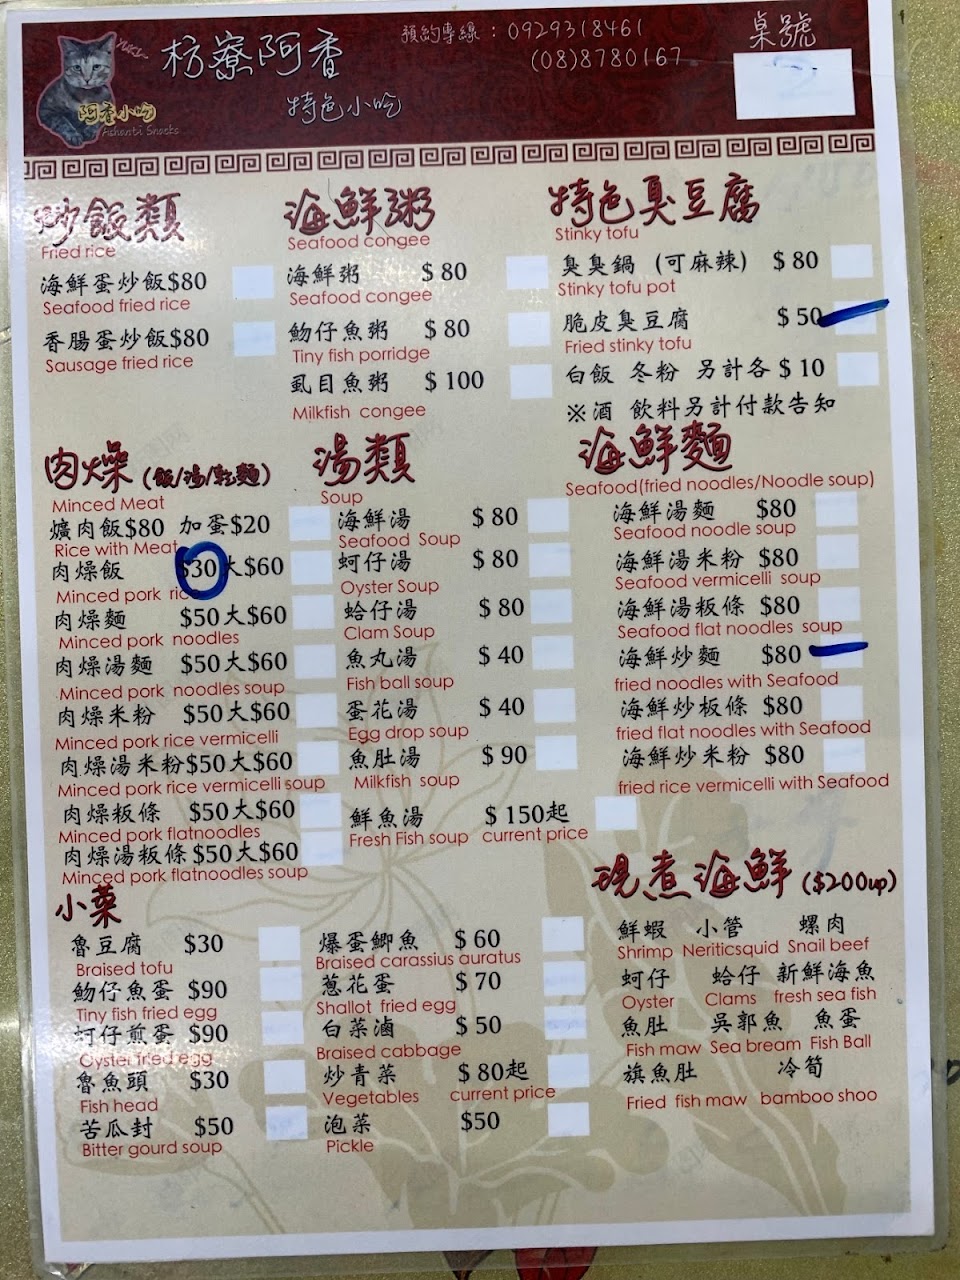 枋寮阿香
特色小吃
預約專線：0929318461
(08)8780167
桌號
2
阿香小吃
Ashanti Snacks
炒飯類
Fried rice
海鮮蛋炒飯$80
Seafood fried rice
香腸蛋炒飯$80
Sausage fried rice
海鮮粥
Seafood congee
海鮮粥 $80
Seafood congee
魩仔魚粥 $80
Tiny fish porridge
虱目魚粥 $100
Milkfish congee
特色臭豆腐
Stinky tofu
臭臭鍋 (可麻辣) $80
Stinky tofu pot
脆皮臭豆腐 $50
Fried stinky tofu
白飯 冬粉 另計各 $10
※酒 飲料另計付款告知
肉燥 (飯/湯/乾麵)
Minced Meat
爌肉飯$80 加蛋$20
Rice with Meat
肉燥飯 $30大$60
Minced pork rice
肉燥麵 $50大$60
Minced pork noodles
肉燥湯麵 $50大$60
Minced pork noodles soup
肉燥米粉 $50大$60
Minced pork rice vermicelli
肉燥湯米粉$50大$60
Minced pork rice vermicelli soup
肉燥粄條 $50大$60
Minced pork flatnoodles
肉燥湯粄條$50大$60
Minced pork flatnoodles soup
湯類
Soup
海鮮湯 $80
Seafood Soup
蚵仔湯 $80
Oyster Soup
蛤仔湯 $80
Clam Soup
魚丸湯 $40
Fish ball soup
蛋花湯 $40
Egg drop soup
魚肚湯 $90
Milkfish soup
鮮魚湯 $150起
Fresh Fish soup current price
海鮮麵
Seafood(fried noodles/Noodle soup)
海鮮湯麵 $80
Seafood noodle soup
海鮮湯米粉 $80
Seafood vermicelli soup
海鮮湯粄條 $80
Seafood flat noodles soup
海鮮炒麵 $80
fried noodles with Seafood
海鮮炒板條 $80
fried flat noodles with Seafood
海鮮炒米粉 $80
fried rice vermicelli with Seafood
小菜
魯豆腐 $30
Braised tofu
魩仔魚蛋 $90
Tiny fish fried egg
蚵仔煎蛋 $90
Oyster fried egg
魯魚頭 $30
Fish head
苦瓜封 $50
Bitter gourd soup
爆蛋鯽魚 $60
Braised carassius auratus
蔥花蛋 $70
Shallot fried egg
白菜滷 $50
Braised cabbage
炒青菜 $80起
Vegetables current price
泡菜 $50
Pickle
現煮海鮮 ($200up)
鮮蝦 小管 螺肉
Shrimp Neriticsquid Snail beef
蚵仔 蛤仔 新鮮海魚
Oyster Clams fresh sea fish
魚肚 吳郭魚 魚蛋
Fish maw Sea bream Fish Ball
旗魚肚 冷筍
Fried fish maw bamboo shoo